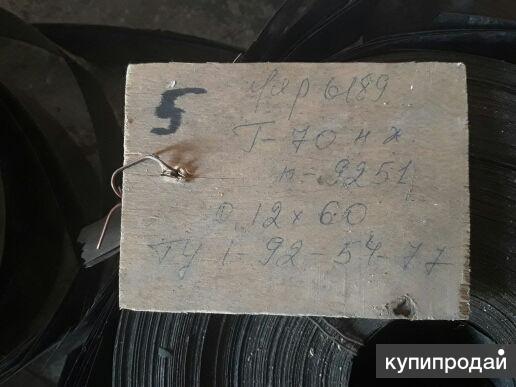 5
6189
Т-70 н х
п-9251
0,12х60
ТУ 1-92-54-77
купипродай